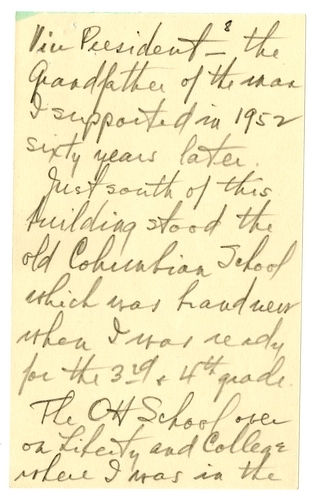 Vice President - the
8
Grandfather of the man
I supported in 1952
sixty years later.
Just south of this
building stood the
old Columbian School
which was brand new
when I was ready
for the 3rd & 4th grade.
The Ott School over
on Liberty and College
where I was in the